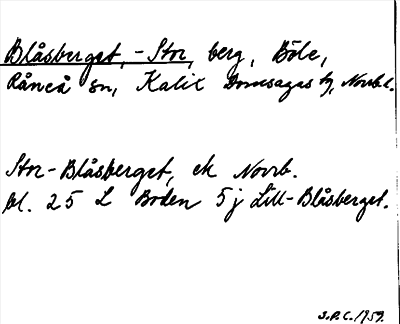 Blåsberget, -Stor, berg, Böle,
Råneå sn, Kalix Domsagas tg, Norrb.l.
Stor-Blåsberget, ek Norrb.
bl. 25 L Boden 5 j Lill-Blåsberget.
S.P.C. 1959.